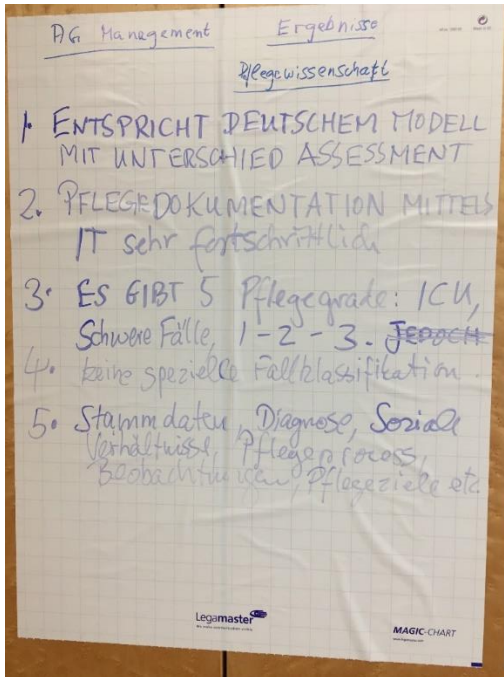 AG Management Ergebnisse
Pflegewissenschaft
1. ENTSPRICHT DEUTSCHEM MODELL
MIT UNTERSCHIED ASSESSMENT
2. PFLEGEDOKUMENTATION MITTELS
IT sehr fortschrittlich
3. ES GIBT 5 Pflegegrade: ICU,
Schwere Fälle, 1-2-3. JEDOCH
4. keine spezielle Fallklassifikation.
5. Stammdaten, Diagnose, Soziale
Verhältnisse, Pflegeprocess,
Beobachtungen, Pflegeziele etc
Legamaster
MAGIC-CHART